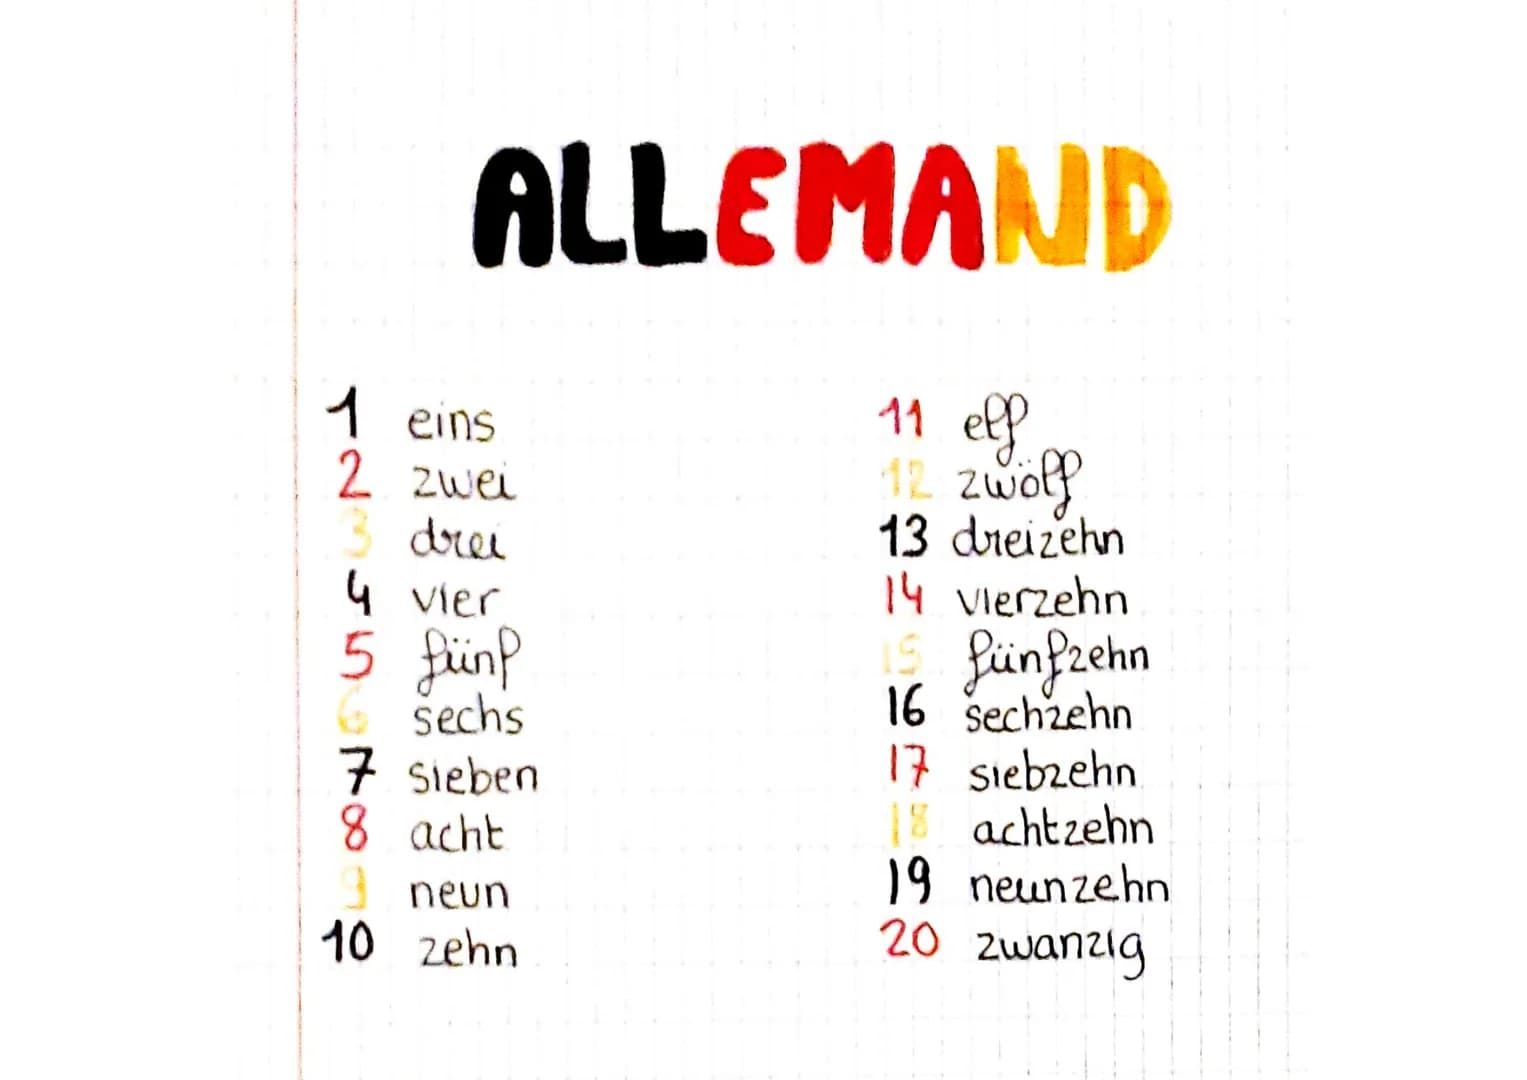 ALLEMAND
1 eins
2 zwei
3 drei
4 vier
5 fünf
6 sechs
7 sieben
8 acht
9 neun
10 zehn
11 elf
12 zwölf
13 dreizehn
14 vierzehn
15 fünfzehn
16 sechzehn
17 siebzehn
18 achtzehn
19 neunzehn
20 zwanzig